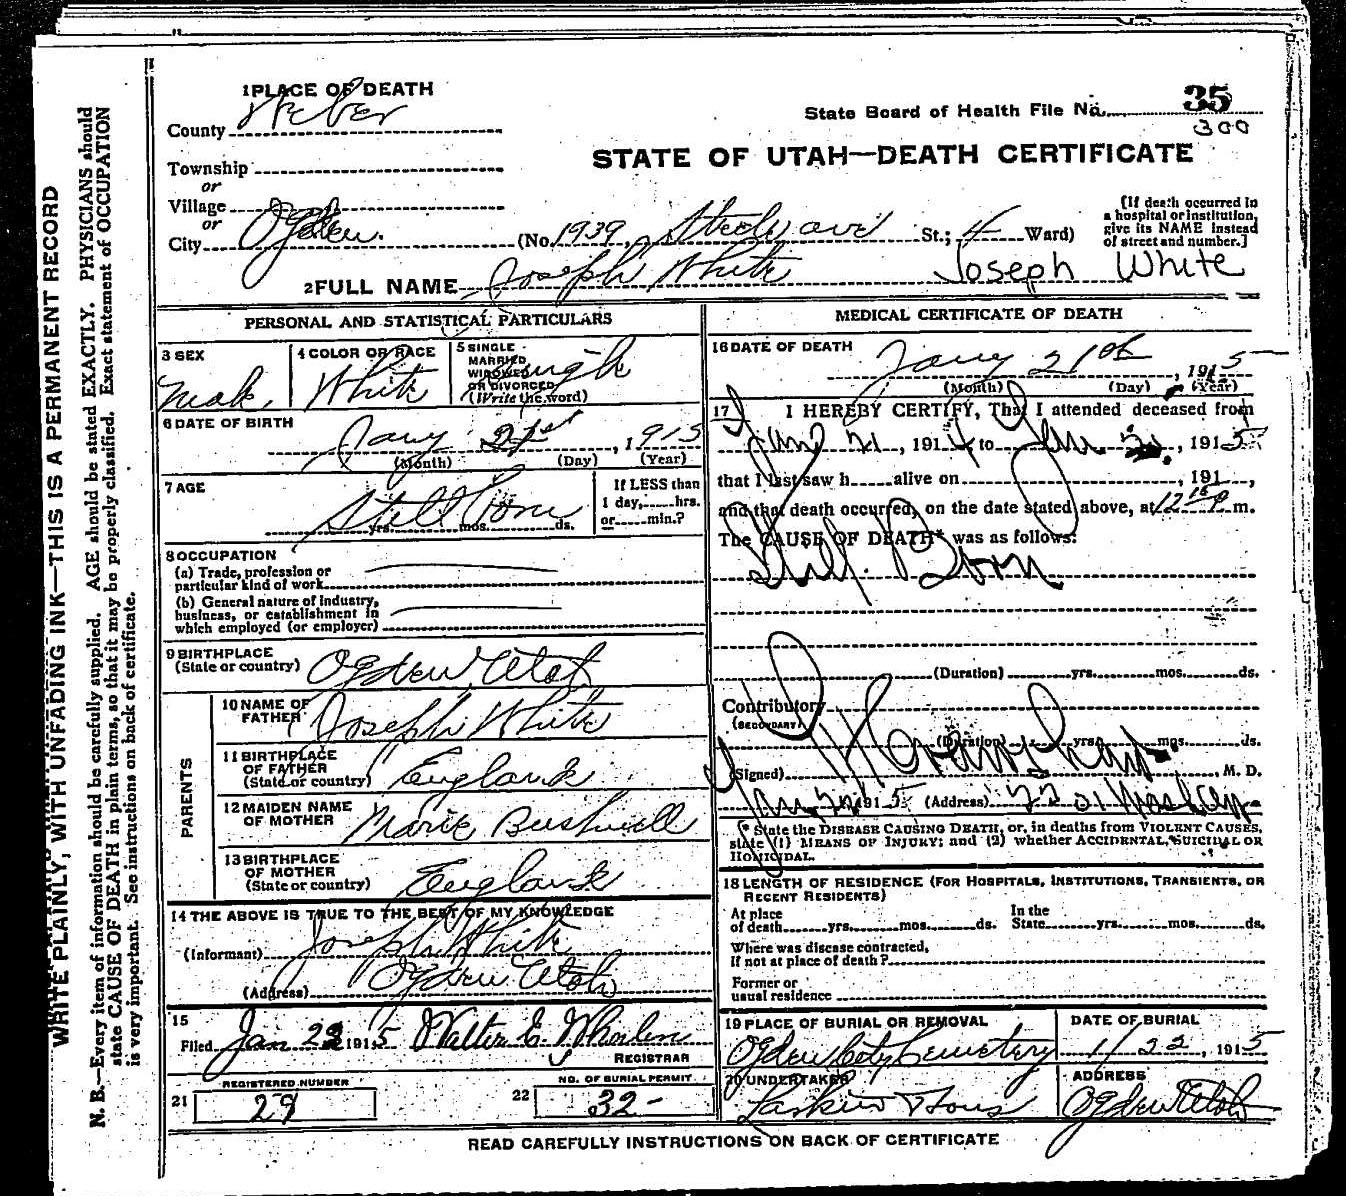 1 PLACE OF DEATH
County Weber
State Board of Health File No. 35
300
STATE OF UTAH—DEATH CERTIFICATE
Township
or
Village
or
City Ogden. (No. 1939, Steele ave St.; 4 Ward)
[If death occurred in
a hospital or institution,
give its NAME instead
of street and number.]
2 FULL NAME Joseph White Joseph White
PERSONAL AND STATISTICAL PARTICULARS
3 SEX
Male
4 COLOR OR RACE
White
5 SINGLE
MARRIED
WIDOWED
OR DIVORCED
(Write the word)
Single
6 DATE OF BIRTH
Jany 21st, 1915
(Month) (Day) (Year)
7 AGE
Still Born
yrs. mos. ds.
If LESS than
1 day, hrs.
or min.?
8 OCCUPATION
(a) Trade, profession or
particular kind of work
(b) General nature of industry,
business, or establishment in
which employed (or employer)
9 BIRTHPLACE
(State or country) Ogden Utah
PARENTS
10 NAME OF
FATHER Joseph White
11 BIRTHPLACE
OF FATHER
(State or country) England
12 MAIDEN NAME
OF MOTHER Marie Bushwell
13 BIRTHPLACE
OF MOTHER
(State or country) England
14 THE ABOVE IS TRUE TO THE BEST OF MY KNOWLEDGE
(Informant) Joseph White
(Address) Ogden Utah
15
Filed Jan 22 1915 Walter E. Whalen
REGISTRAR
REGISTERED NUMBER
21 29
NO. OF BURIAL PERMIT
22 32-
MEDICAL CERTIFICATE OF DEATH
16 DATE OF DEATH
Jany 21st, 1915
(Month) (Day) (Year)
17 I HEREBY CERTIFY, That I attended deceased from
Jan 21, 1914 to Jan 21, 1915
that I last saw h alive on , 191 ,
and that death occurred, on the date stated above, at 12 15 P m.
The CAUSE OF DEATH* was as follows:
Still Born
(Duration) yrs. mos. ds.
Contributory
(SECONDARY)
(Duration) yrs. mos. ds.
(Signed) , M. D.
Jan 22 1915 (Address)
* State the DISEASE CAUSING DEATH, or, in deaths from VIOLENT CAUSES,
state (1) MEANS OF INJURY; and (2) whether ACCIDENTAL, SUICIDAL OR
HOMICIDAL.
18 LENGTH OF RESIDENCE (FOR HOSPITALS, INSTITUTIONS, TRANSIENTS, OR
RECENT RESIDENTS)
At place
of death yrs. mos. ds.
In the
State yrs. mos. ds.
Where was disease contracted,
if not at place of death?
Former or
usual residence
19 PLACE OF BURIAL OR REMOVAL
Ogden City Cemetery
DATE OF BURIAL
1/22, 1915
20 UNDERTAKER
Larkin & Sons
ADDRESS
Ogden Utah
READ CAREFULLY INSTRUCTIONS ON BACK OF CERTIFICATE
WRITE PLAINLY, WITH UNFADING INK—THIS IS A PERMANENT RECORD
N. B.—Every item of information should be carefully supplied. AGE should be stated EXACTLY. PHYSICIANS should
state CAUSE OF DEATH in plain terms, so that it may be properly classified. Exact statement of OCCUPATION
is very important. See instructions on back of certificate.